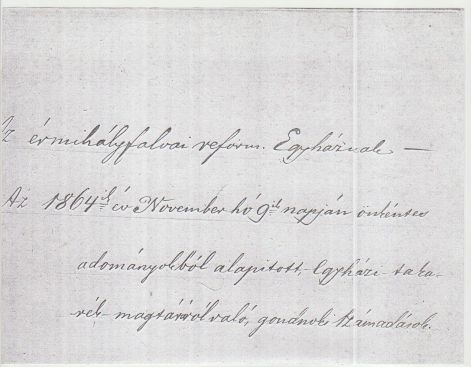 Az érmihályfalvai reform. Egyháznak —
Az 1864ik év November hó 9ik napján önkéntes
adományokból alapitott, Egyházi-taka-
rék-magtárról való, gondnoki számadások.